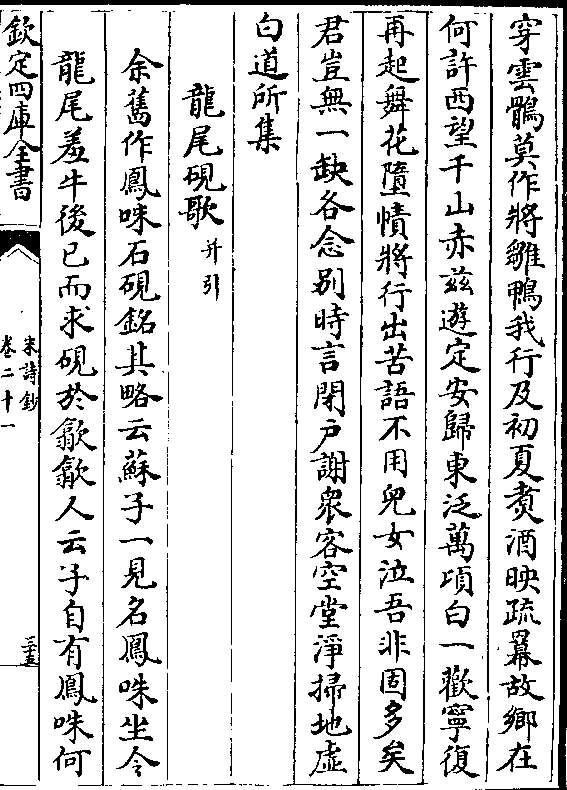 穿雲鶻莫作將雛鴨我行及初夏煮酒映疏冪故鄉在
何許西望千山赤兹遊定安歸東泛萬頃白一歡寧復
再起舞花墮幘將行出苦語不用兒女泣吾非固多矣
君豈無一缺各念别時言閉户謝衆客空堂淨掃地虚
白道所集
龍尾硯歌并引
余舊作鳳咮石硯銘其略云蘇子一見名鳳咮坐令
龍尾羞牛後已而求硯於歙歙人云子自有鳳咮何
欽定四庫全書
宋詩鈔
卷二十一
三五